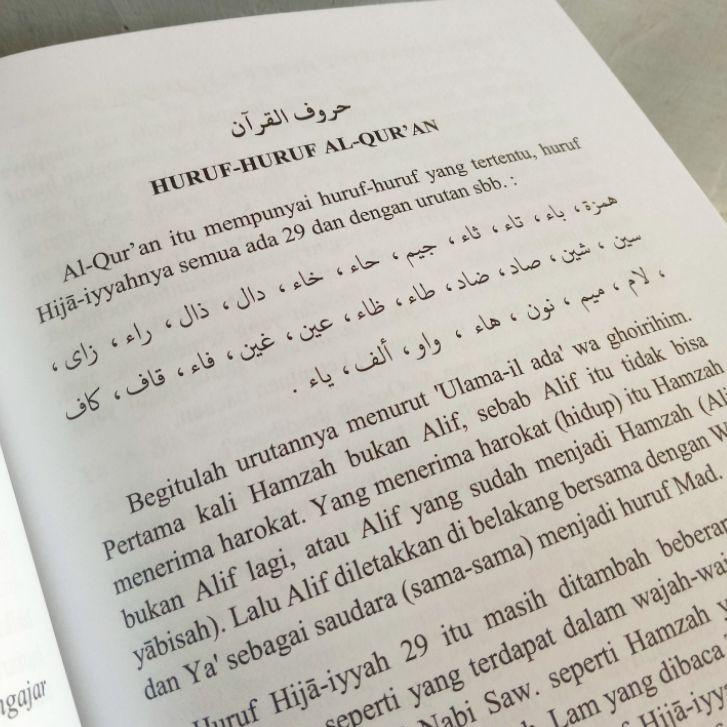 حروف القرآن
HURUF-HURUF AL-QUR'AN
Al-Qur'an itu mempunyai huruf-huruf yang tertentu, huruf
Hijā-iyyahnya semua ada 29 dan dengan urutan sbb. :
همزة، باء، تاء، ثاء، جيم، حاء، خاء، دال، ذال، راء، زاى،
سين، شين، صاد، ضاد، طاء، ظاء، عين، غين، فاء، قاف، كاف
، لام، ميم، نون، هاء، واو، ألف، ياء .
Begitulah urutannya menurut 'Ulama-il ada' wa ghoirihim.
Pertama kali Hamzah bukan Alif, sebab Alif itu tidak bisa
menerima harokat. Yang menerima harokat (hidup) itu Hamzah
bukan Alif lagi, atau Alif yang sudah menjadi Hamzah
yābisah). Lalu Alif diletakkan di belakang bersama dengan
dan Ya' sebagai saudara (sama-sama) menjadi huruf Mad.
Huruf Hijā-iyyah 29 itu masih ditambah
seperti yang terdapat dalam
Nabi Saw. seperti Hamzah
Lam yang dibaca
ngajar